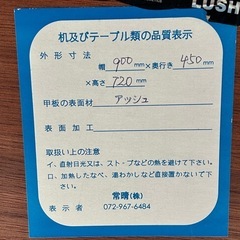 LUSH
机及びテーブル類の品質表示
外形寸法
幅900mm×奥行き450mm
×高さ720mm
甲板の表面材 アッシュ
表面加工
取扱い上の注意
イ、直射日光又は、スト-ブなどの熱を避けて下さい。
ロ、加熱したなべ、湯わかしなど直接置かないで下さい。
常晴(株)
表示者 072-967-6484